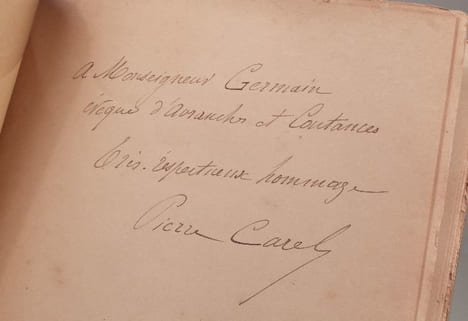 A Monseigneur Germain
évêque d'Avranches et Coutances
très-respectueux hommage
Pierre Carel